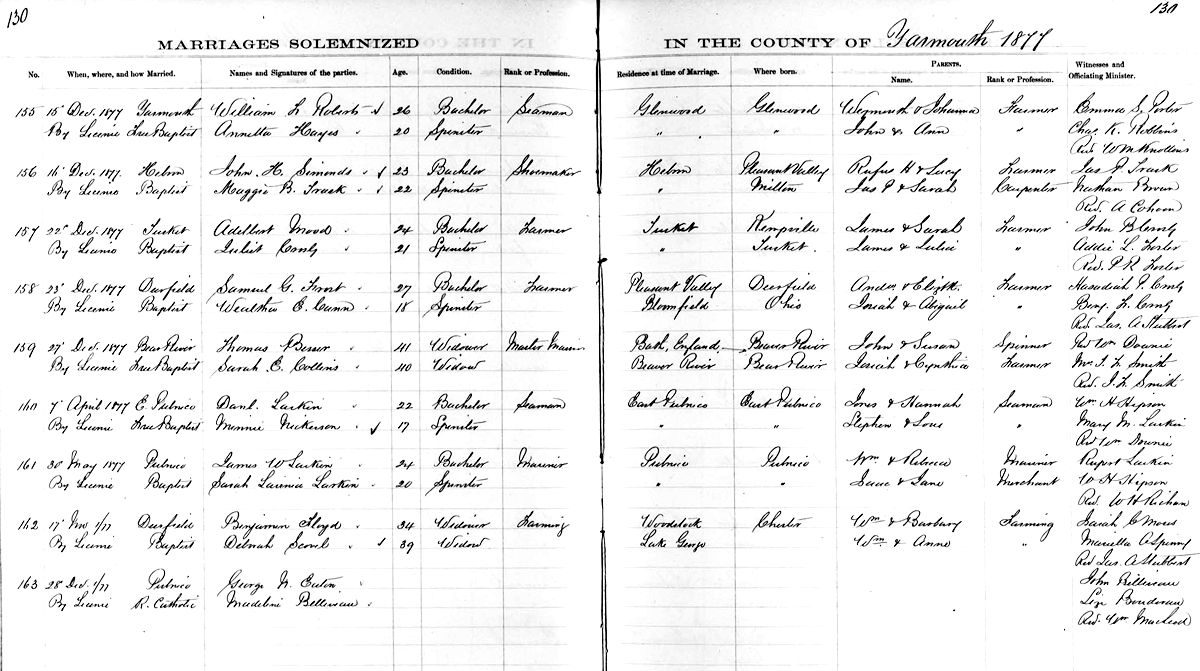 130
130
MARRIAGES SOLEMNIZED IN THE COUNTY OF Yarmouth 1877
No. When, where, and how Married. Names and Signatures of the parties. Age. Condition. Rank or Profession. Residence at time of Marriage. Where born. PARENTS. Name. Rank or Profession. Witnesses and Officiating Minister.
155 15 Decr 1877 Yarmouth William L Roberts 26 Bachelor Seaman Glenwood Glenwood Weymouth & Johanna Farmer Emma S. Porter
By Licence Free Baptist Annetta Hayes 20 Spinster " " John & Ann " Chas. K. Robbins
Rev. Wm
156 16 Decr 1877 Hebron John. H. Simonds 23 Bachelor Shoemaker Hebron Pleasant Valley Rufus H & Lucy Farmer Jas P. Trask
By Licence Baptist Maggie B. Trask 22 Spinster " Milton Jas P & Sarah Carpenter Nathan Brown
Rev. A Cohoon
157 22 Decr 1877 Tusket Adelbert Mood 24 Bachelor Farmer Tusket Kempville James & Sarah Farmer John B
By Licence Baptist 21 Spinster " Tusket James & " Addie L. Foster
Rev. P. R Foster
158 25 Decr 1877 Deerfield Samuel G. Frost 27 Bachelor Farmer Pleasant Valley Deerfield Andw & Elizth Farmer P.
By Licence Baptist E. Cann 18 Spinster Bloomfield Ohio Josiah & Abigail " Benj. L.
Rev. Jas. A Stubbert
159 27 Decr 1877 Bear River Thomas 41 Widower Master Marin Bath, England Beaver River John & Susan Spinner Wm Downie
By Licence Free Baptist Sarah E. Collins 40 Widow Beaver River Bear River Josiah & Cynthia Farmer Mrs J. L. Smith
Rev. J. L Smith
160 7 April 1877 E. Pubnico Danl. Larkin 22 Bachelor Seaman East Pubnico East Pubnico & Hannah Seaman Wm H Hipson
By Licence Free Baptist Minnie Nickerson 17 Spinster " " Stephen & " Mary M. Larkin
Rev Wm Downie
161 30 May 1877 Pubnico James W Larkin 24 Bachelor Mariner Pubnico Pubnico Wm & Rebecca Mariner Rupert Larkin
By Licence Baptist Sarah Larkin 20 Spinster " " Isaac & Jane Merchant W H Hipson
Rev. W H Richan
162 17 Deerfield Benjamin Floyd 34 Widower Farming Woodstock Chester Wm & Barbary Farming Sarah C
By Licence Baptist Deborah 39 Widow Lake George Wm & Anne " A
Rev Jas. A Stubbert
163 28 Decr Pubnico George N. John
By Licence R. Catholic
Rev. Wm MacLeod